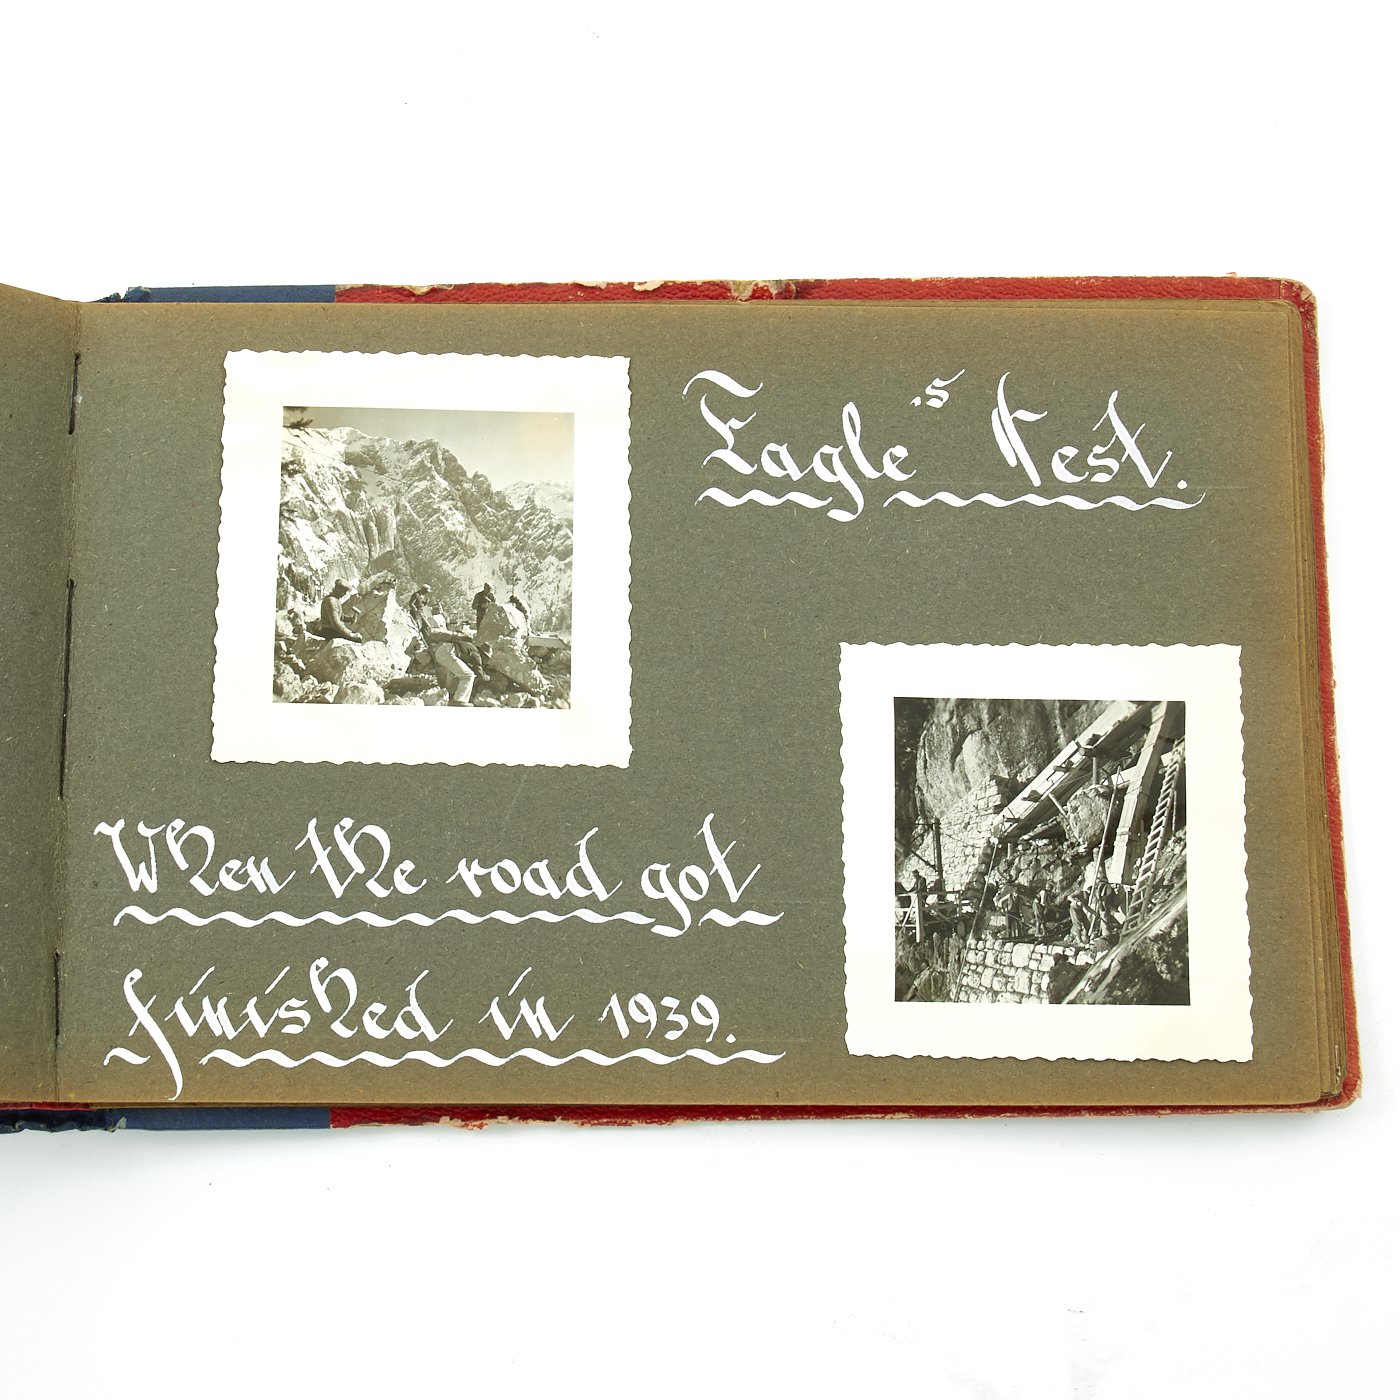 Eagle's Nest.
When the road got
finished in 1939.